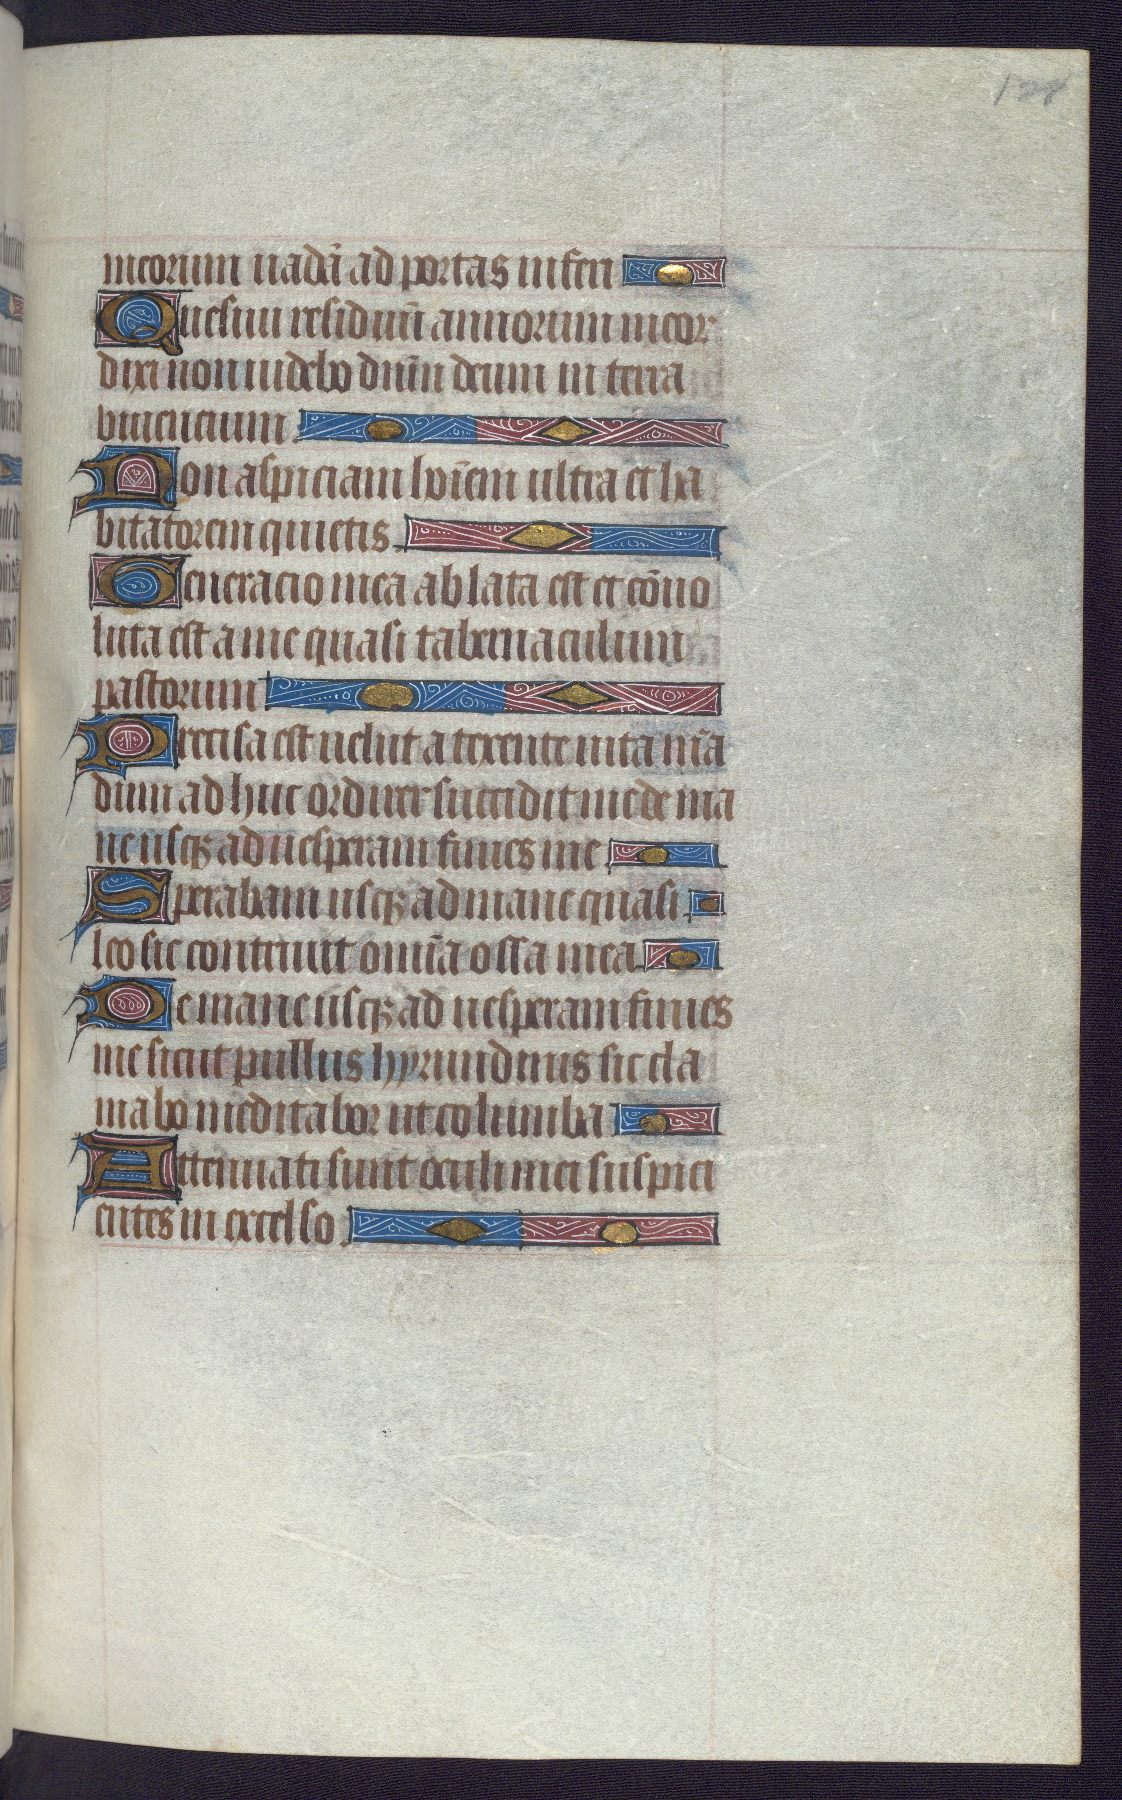 meorum uadā ad portas inferi
Quesiui residuū annorum meor
dixi non uidebo dn̄m deum in terra
uiuencium
Non aspiciam hoīem ultra et ha
bitatorem quietis
Generacio mea ablata est et cōuo
luta est a me quasi tabernaculum
pastorum
Precisa est uelut a texente uita mēa
dum ad huc ordirer succidit me de ma
ne usqꝫ ad uesperam finies me
Sperabam usqꝫ ad mane quasi
leo sic contriuit omīa ossa mea
De mane usqꝫ ad uesperam finies
me sicut pullus hyrundinis sic cla
mabo meditabor ut columba
Attenuati sunt oculi mei suspici
entes in excelso